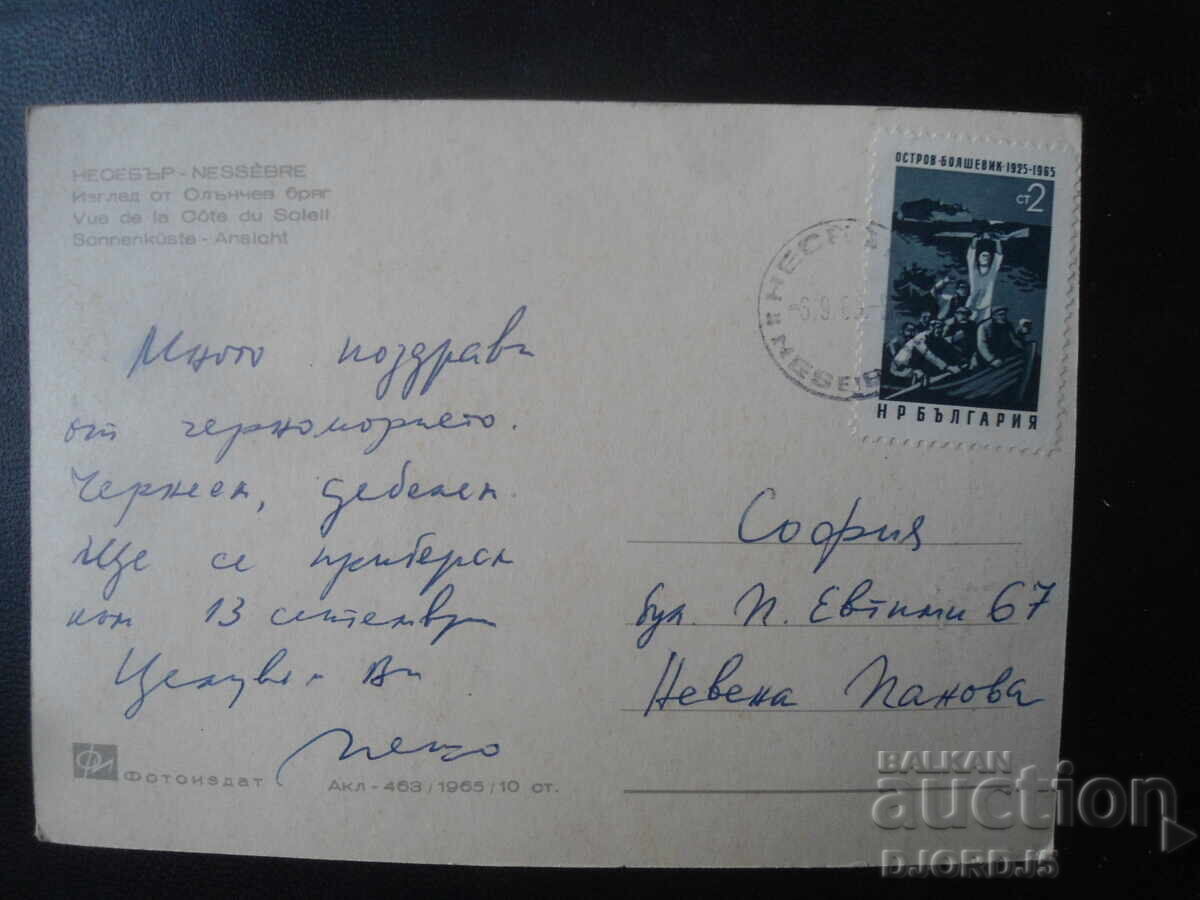 НЕСЕБЪР - NESSÈBRE
Изглед от Слънчев бряг
Vue de la Côte du Soleil
Sonnenküste - Ansicht
ОСТРОВ·БОЛШЕВИК·1925-1965
СТ 2
НР БЪЛГАРИЯ
NESEB
Много поздрави
от черноморието.
Чернея, дебелея.
Ще се прибера
към 13 септември
Целувам Ви
София
бул. П. Евтими 67
Невена Панова
Фотоиздат
Акл - 463/1965/10 ст.
BALKAN
auction
DJORDJ5